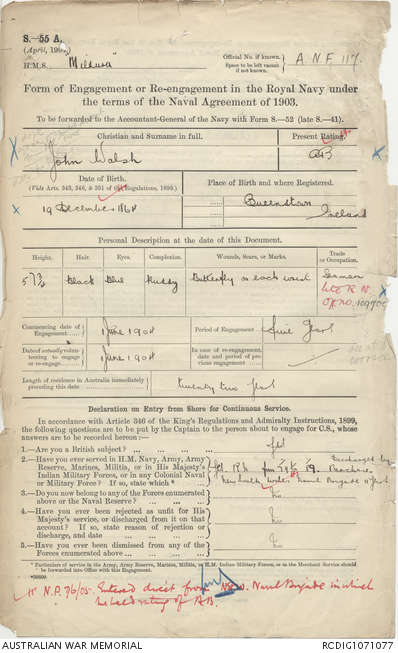 S.—55 A.
(April, 1904)
H.M.S. "Mildura"
Official No. if known. } A.N.F. 117.
Space to be left vacant if not known.
Form of Engagement or Re-engagement in the Royal Navy under
the terms of the Naval Agreement of 1903.
To be forwarded to the Accountant-General of the Navy with Form S.—52 (late S.—41).
Christian and Surname in full.
Present Rating.
John Walsh
AB
Date of Birth.
(Vide Arts. 349, 346, & 351 of Regulations, 1899.)
Place of Birth and where Registered.
19 December 1868
Queenstown
Ireland
Personal Description at the date of this Document.
Height. Hair. Eyes. Complexion. Wounds, Scars, or Marks. Trade or Occupation.
5 7½ Black Blue Ruddy Butterfly on each wrist Seaman
Commencing date of Engagement
1 June 1904
Period of Engagement
Date of actually volunteering to engage or re-engage
1 June 1904
In case of re-engagement, date and period of previous engagement
Length of residence in Australia immediately preceding this date
twenty two years
Declaration on Entry from Shore for Continuous Service.
In accordance with Article 346 of the King's Regulations and Admiralty Instructions, 1899,
the following questions are to be put by the Captain to the person about to engage for C.S., whose
answers are to be recorded hereon:—
1.—Are you a British subject?
yes
2.—Have you ever served in H.M. Navy, Army, Army
Reserve, Marines, Militia, or in His Majesty's
Indian Military Forces, or in any Colonial Naval
or Military Force? If so, state which*
New South Wales Naval Brigade
3.—Do you now belong to any of the Forces enumerated
above or the Naval Reserve?
No
4.—Have you ever been rejected as unfit for His
Majesty's service, or discharged from it on that
account? If so, state reason of rejection or
discharge, and date
No
5.—Have you ever been dismissed from any of the
Forces enumerated above
No
* Particulars of service in the Army, Army Reserve, Marines, Militia, or H.M. Indian Military Forces, or in the Merchant Service should
be forwarded into Office with this Engagement.
N.P. 76/05. Entered direct from N.S.W. Naval Brigade in which
he held rating of A.B.
AUSTRALIAN WAR MEMORIAL
RCDIG1071077